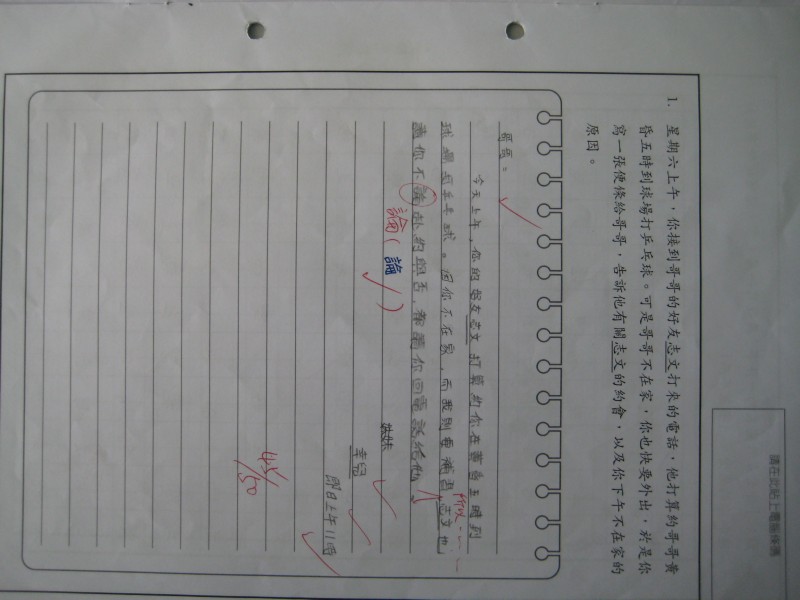 請在此貼上電腦條碼
1. 星期六上午，你接到哥哥的好友志文打來的電話，他打算約哥哥黃
昏五時到球場打乒乓球。可是哥哥不在家，你也快要外出，於是你
寫一張便條給哥哥，告訴他有關志文的約會，以及你下午不在家的
原因。
哥哥：
今天上午，你的好友志文打算約你在黃昏五時到
球場打乒乓球。因你不在家，而我則要補習
所以
志文他
不論赴約與否，都請你回電話給他。
論（論）
妹妹
幸兒
即日上午11時
45/50